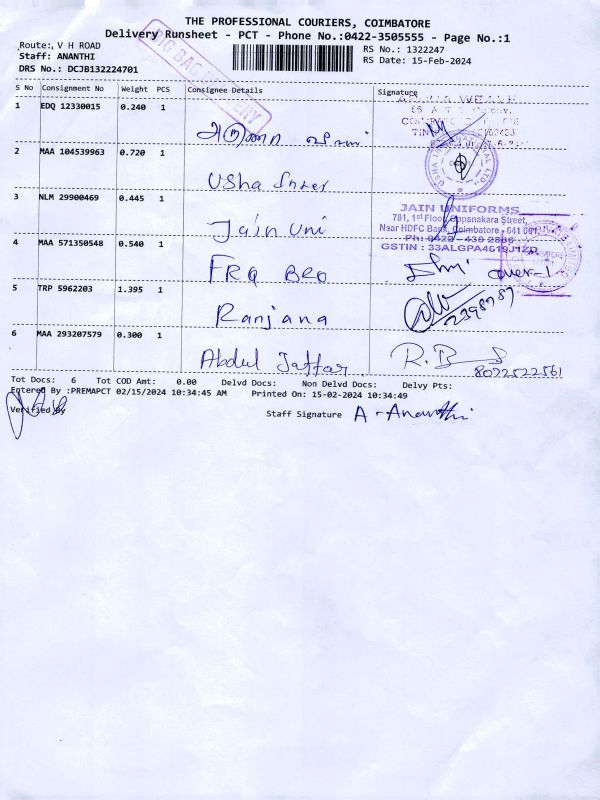 THE PROFESSIONAL COURIERS, COIMBATORE
Delivery Runsheet - PCT - Phone No.:0422-3505555 - Page No.:1
Route:, V H ROAD
RS No.: 1322247
Staff: ANANTHI
RS Date: 15-Feb-2024
DRS No.: DCJB132224701
BIG BAG DELIVERY
S No Consignment No Weight PCS Consignee Details Signature
1 EDQ 12330015 0.240 1
2 MAA 104539963 0.720 1
Usha Inter
3 NLM 29900469 0.445 1
Jain Uni
JAIN UNIFORMS
781, 1st Floor, Oppanakara Street,
Near HDFC Bank, Coimbatore - 641 001
GSTIN : 33ALGPA4619J1ZD
4 MAA 571350548 0.540 1
FRQ BRO
5 TRP 5962203 1.395 1
Ranjana
6 MAA 293207579 0.300 1
Abdul Jaffar
8072522561
Tot Docs: 6 Tot COD Amt: 0.00 Delvd Docs: Non Delvd Docs: Delvy Pts:
Entered By :PREMAPCT 02/15/2024 10:34:45 AM Printed On: 15-02-2024 10:34:49
Verified By
Staff Signature A. Ananthi